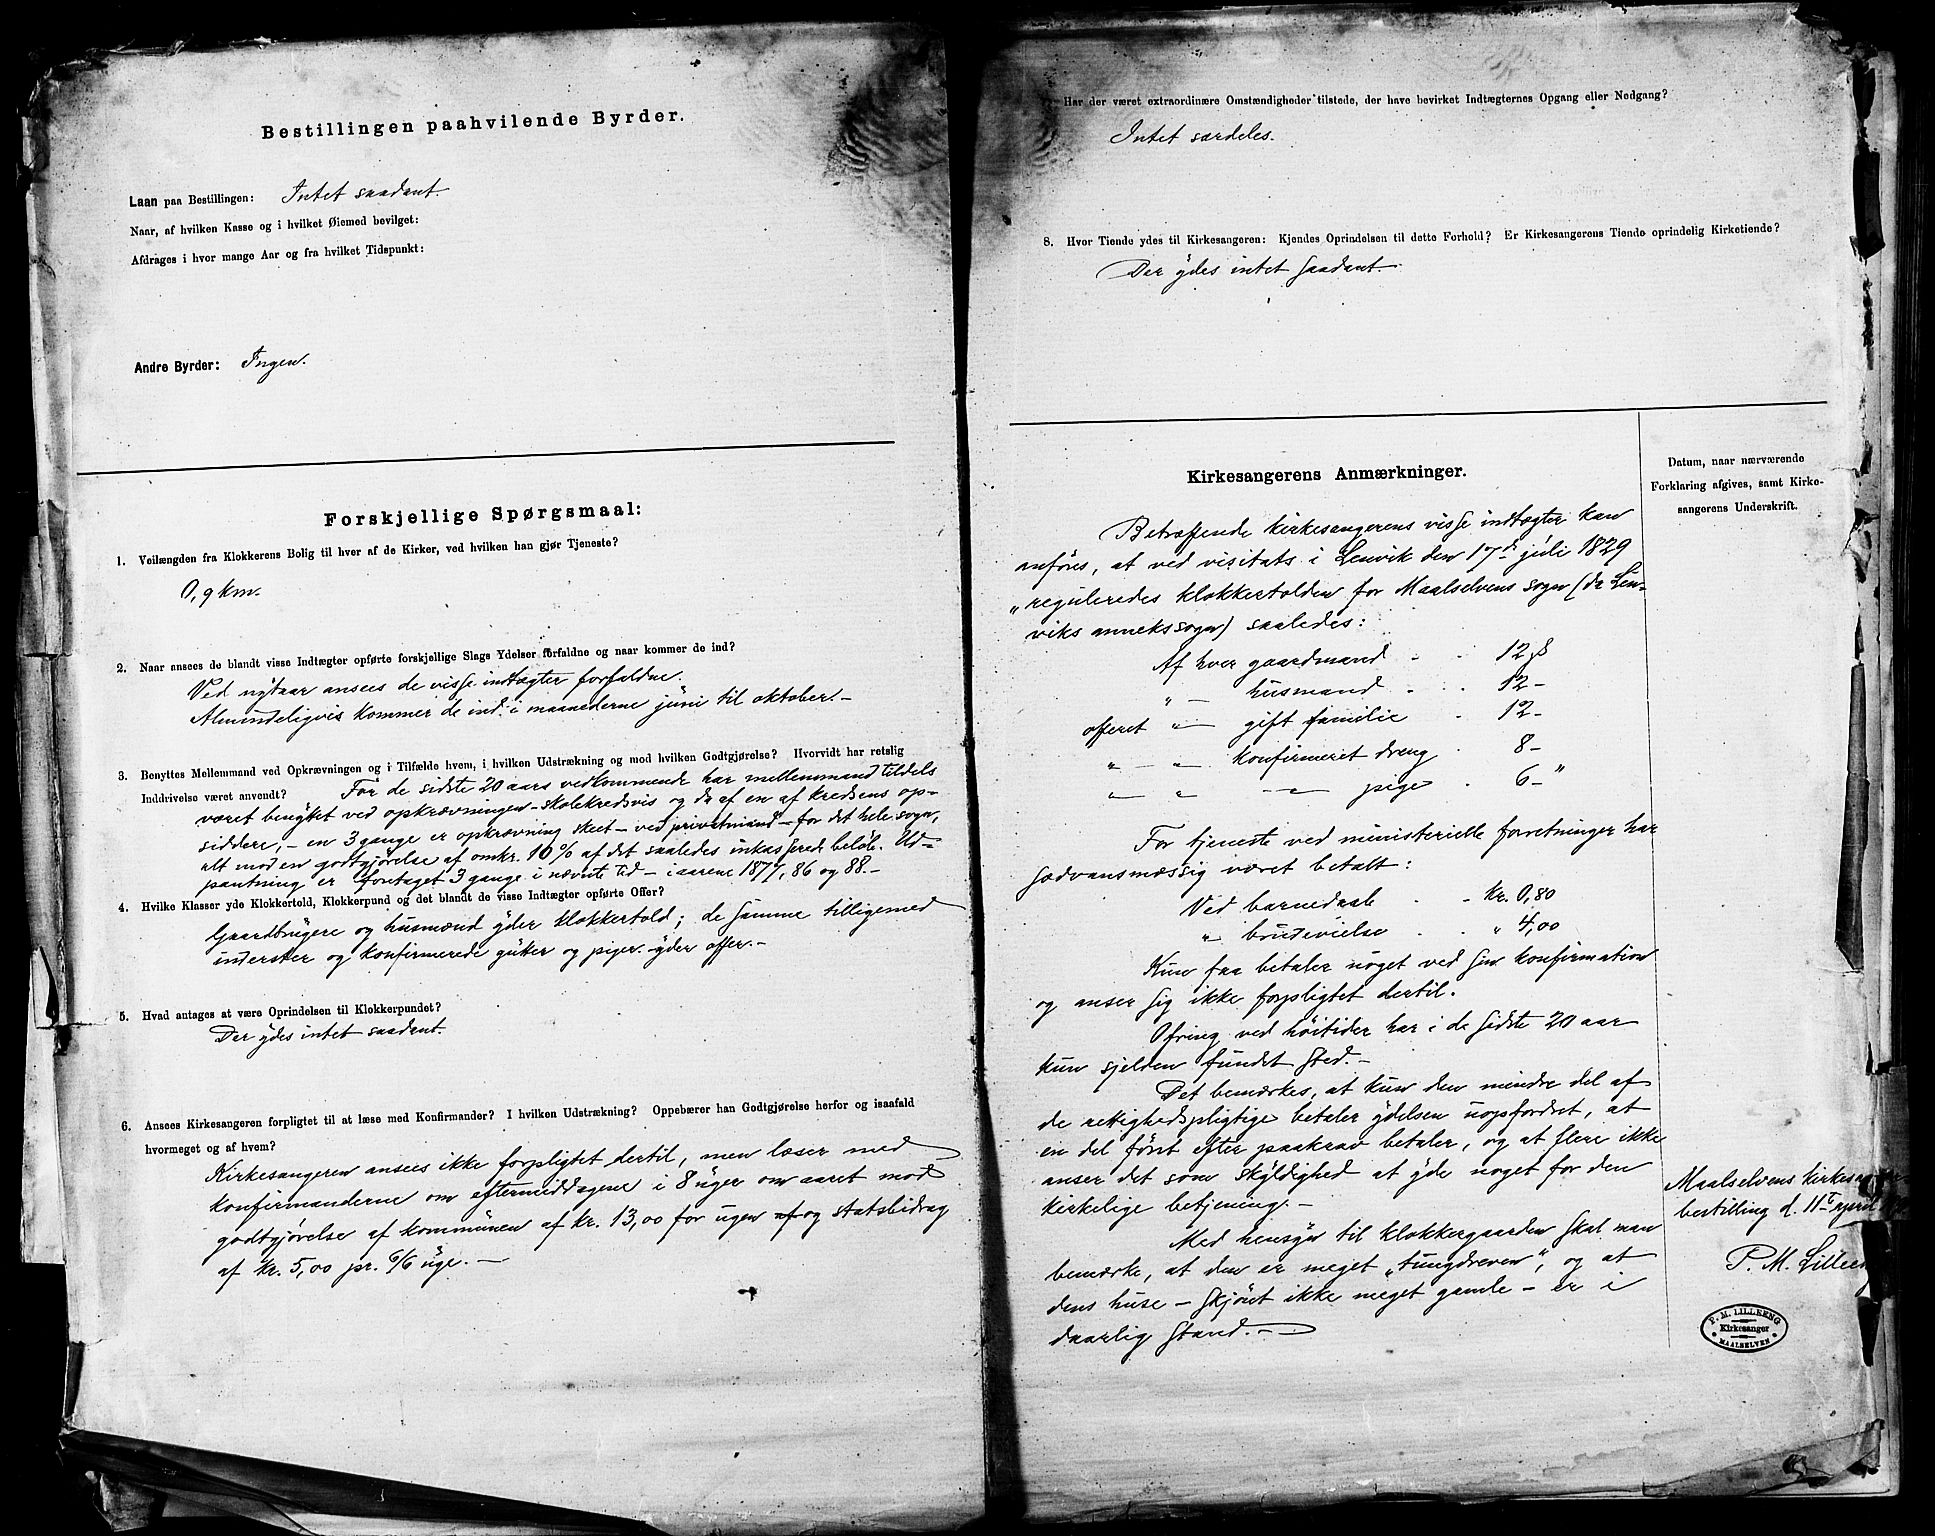 Bestillingen paahvilende Byrder.
Laan paa Bestillingen: Intet saadant.
Naar, af hvilken Kasse og i hvilket Øiemed bevilget:
Afdrages i hvor mange Aar og fra hvilket Tidspunkt:
Andre Byrder: Ingen.
Forskjellige Spørgsmaal:
1. Veilængden fra Klokkerens Bolig til hver af de Kirker, ved hvilken han gjør Tjeneste?
0,9 km.
2. Naar ansees de blandt visse Indtægter opførte forskjellige Slags Ydelser forfaldne og naar kommer de ind?
Ved nytaar ansees de visse indtægter forfaldne.
Almindeligvis kommer de ind i maanederne juni til oktober.-
3. Benyttes Mellemmand ved Opkrævningen og i Tilfælde hvem, i hvilken Udstrækning og mod hvilken Godtgjørelse? Hvorvidt har retslig
Inddrivelse været anvendt? For de sidste 20 aars vedkommende har mellemmand tildels
været benyttet ved opkrævningen - skolekredsvis og da af en af kredsens op-
siddere, - en 3 gange er opkrævning skeet - ved privatmand - for det hele sogn,
alt mod en godtgjörelse af omkr. 10% af det saaledes inkasserede belöb. Ud-
pantning er foretaget 3 gange i nævnte tid - i aarene 1877, 86 og 88.-
4. Hvilke Klasser yde Klokkertold, Klokkerpund og det blandt de visse Indtægter opførte Offer?
Gaardbrugere og husmænd yder klokkertold; de samme tilligemed
inderster og konfirmerede gutter og piger yder offer.-
5. Hvad antages at være Oprindelsen til Klokkerpundet?
Der ydes intet saadant.
6. Ansees Kirkesangeren forpligtet til at læse med Konfirmander? I hvilken Udstrækning? Oppebærer han Godtgjørelse herfor og isaafald
hvormeget og af hvem?
Kirkesangeren ansees ikke forpligtet dertil, men læser med
konfirmanderne om eftermiddagene i 8 uger om aaret mod
godtgjörelse af kommunen af kr. 13,00 for ugen af og statsbidrag
af kr. 5,00 pr. 6/6 uge.-
Har der været extraordinære Omstændigheder tilstede, der have bevirket Indtægternes Opgang eller Nedgang?
Intet særdeles.
8. Hvor Tiende ydes til Kirkesangeren: Kjendes Oprindelsen til dette Forhold? Er Kirkesangerens Tiende oprindelig Kirketiende?
Der ydes intet saadant.
Kirkesangerens Anmærkninger.
Betræffende kirkesangerens visse indtægter kan
anföres, at ved visitats i Lenvik den 17de juli 1829
"reguleredes klokkertolden for Maalselvens sogn (da Len-
viks annekssogn) saaledes:
Af hver gaardmand . . 12 ß
" - husmand . . 12 -
offeret " - gift familie . 12 -
" - " konfirmeret dreng . 8 -
" - " - " - pige . 6 - "
For tjeneste ved ministerielle forretninger har
sædvansmæssig været betalt:
Ved barnedaab . . kr. 0,80
" brudevielse . . " 4,00
Kun faa betaler noget ved sin konfirmation
og anser sig ikke forpligtet dertil.
Ofring ved höitider har i de sidste 20 aar
kun sjelden fundet sted.-
Det bemærkes, at kun den mindre del af
de rettighedspligtige betaler ydelsen uopfordret, at
en del först efter paakrav betaler, og at flere ikke
anser det som skyldighed at yde noget for den
kirkelige betjening.-
Med hensyn til klokkergaarden skal man
bemærke, at den er meget "tungdreven", og at
dens huse - skjönt ikke meget gamle - er i
daarlig stand.-
Datum, naar nærværende
Forklaring afgives, samt Kirke-
sangerens Underskrift.
Maalselvens kirkesanger
bestilling d. 11te april
P. M. Lilleeng
P. M. LILLEENG
Kirkesanger
MAALSELVEN